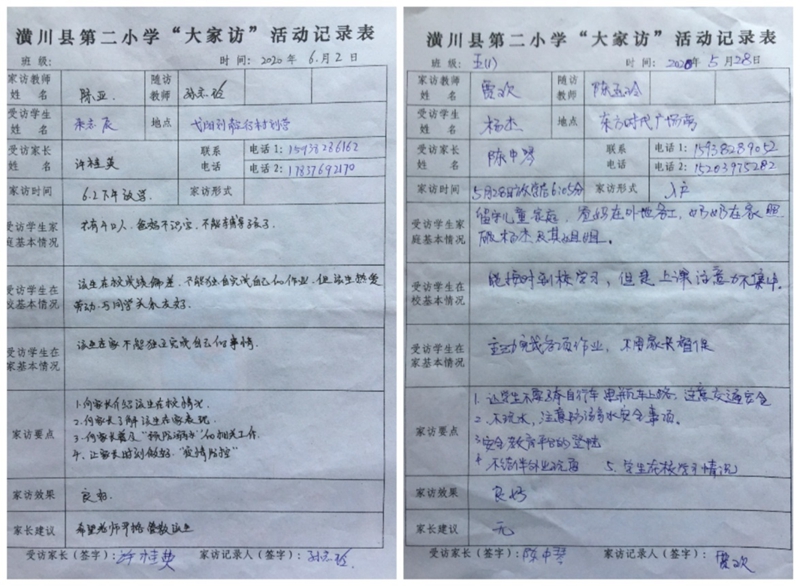 潢川县第二小学“大家访”活动记录表
班 级: 时 间: 2020年 6月2日
家访教师姓 名 陈亚. 随访教师
受访学生姓 名 地点
受访家长姓 名 许桂英 联系电话 电话1: 15938286162
电话2: 17837692170
家访时间 6.2下午 家访形式
受访学生家庭基本情况 共有 口人,爸妈不识字,不能辅导孩子
受访学生在校基本情况 该生在校成绩偏差,不能独自完成自己的作业,但该生热爱
劳动,与同学关系友好.
受访学生在家基本情况 该生在家不能独立完成自己的事情.
家访要点 1.向家长介绍该生在校情况.
2.向家长了解该生在家表现.
3.向家长普及“预防溺水”的相关工作.
4.让家长时刻做好“疫情防控”
家访效果 良好.
家长建议 希望老师严格管教该生
受访家长(签字): 许桂英 家访记录人(签字):
潢川县第二小学“大家访”活动记录表
班 级: 五(1) 时 间: 2020年 5月28日
家访教师姓 名 贾欢 随访教师 陈玉玲
受访学生姓 名 杨杰 地点 东方时代广场南
受访家长姓 名 陈中琴 联系电话 电话1: 15938289052
电话2: 15203975282
家访时间 5月28日 6:05分 家访形式 入户
受访学生家庭基本情况 留守儿童家庭,爸妈在外地务工,奶奶在家照
顾杨杰及其姐姐.
受访学生在校基本情况 能按时到校学习,但是上课注意力不集中.
受访学生在家基本情况 主动完成各项作业,不用家长督促
家访要点 1.让学生不要骑自行车 电瓶车上路,注意交通安全
2.不玩水,注意防溺水安全事项.
3.安全教育平台的登陆
4.不结伴外出玩耍 5.学生在校学习情况
家访效果 良好
家长建议 无
受访家长(签字): 陈中琴 家访记录人(签字): 贾欢